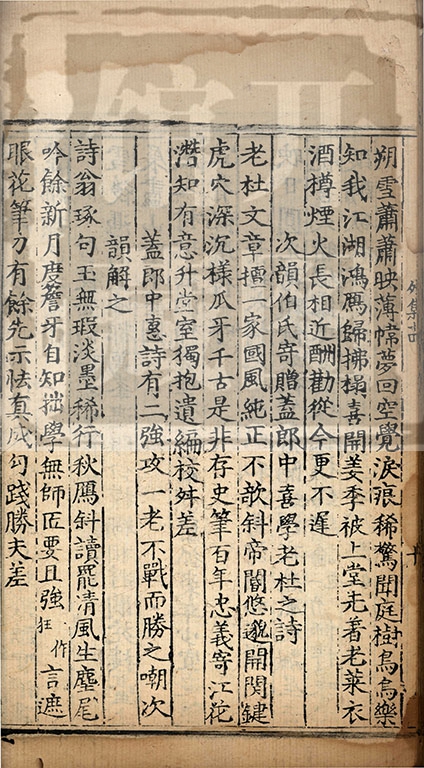 朔雪蕭蕭映薄幃夢回空覺淚痕稀驚聞庭樹烏烏樂
知我江湖鴻鴈歸拂榻喜開姜季被上堂先著老萊衣
酒樽煙火長相近酬勸從今更不遲
次韻伯氏寄贈蓋郎中喜學老杜之詩
老杜文章擅一家國風純正不欹斜帝閽悠邈開関鍵
虎穴深沉樣爪牙千古是非存史筆百年忠義寄江花
潛知有意升堂室獨抱遺編校舛差
蓋郎中惠詩有二強攻一老不戰而勝之嘲次
韻解之
詩翁琢句玉無瑕淡墨稀行秋鴈斜讀罷清風生麈尾
吟餘新月度簷牙自知拙學無師匠要且強狂作言遮
眼花筆力有餘先示怯真成勾踐勝夫差
外集十四